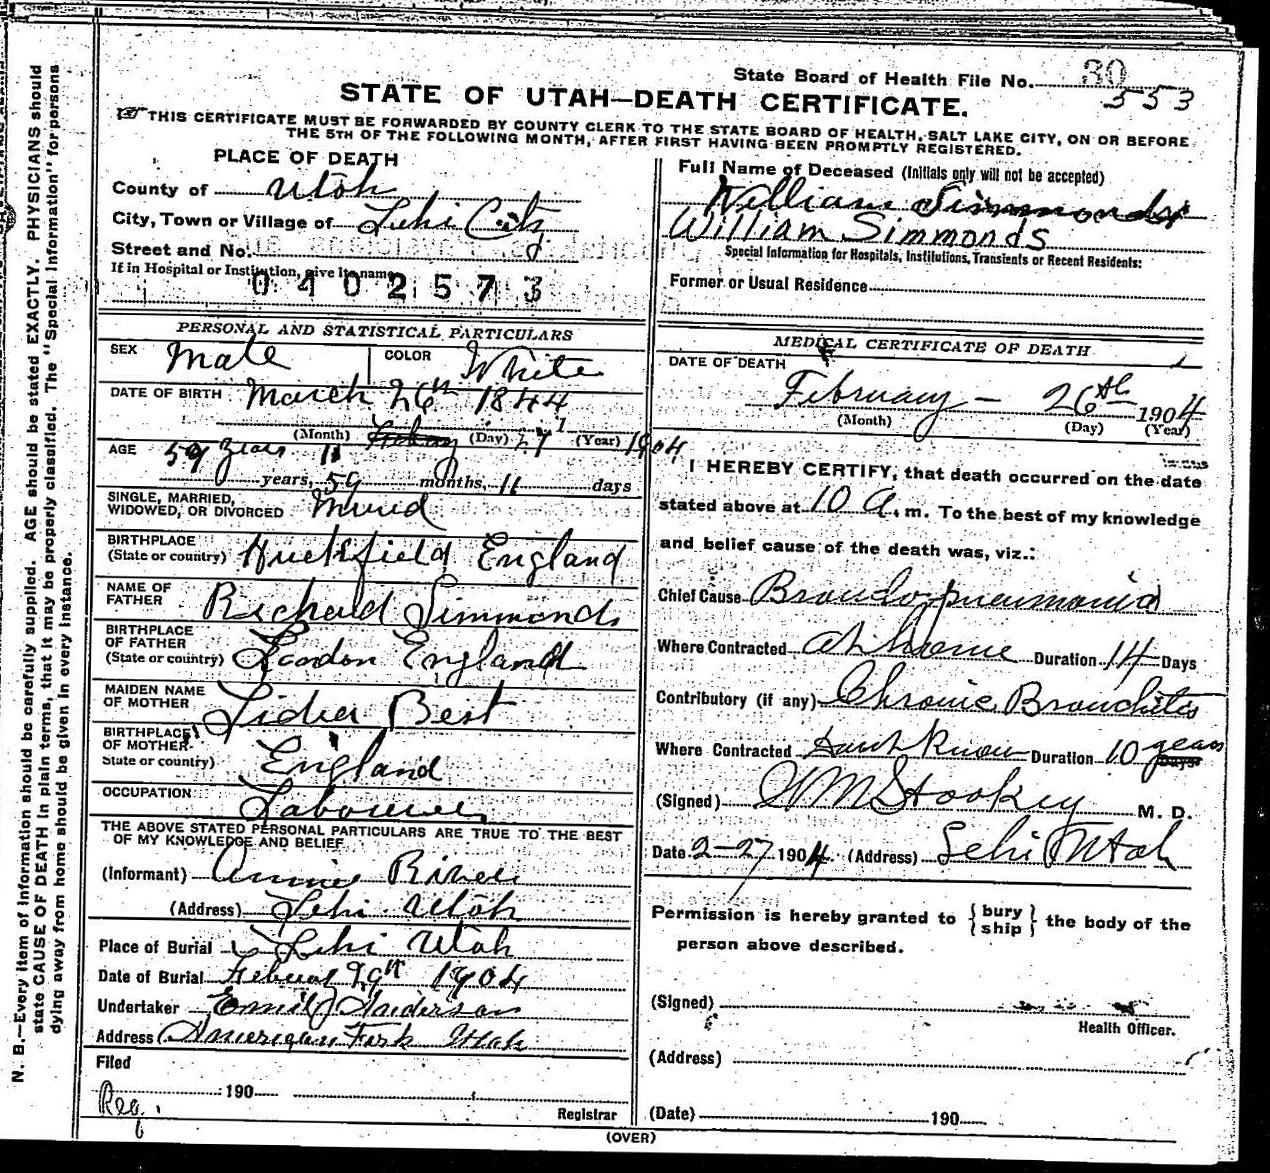 State Board of Health File No. 30
553
STATE OF UTAH—DEATH CERTIFICATE.
THIS CERTIFICATE MUST BE FORWARDED BY COUNTY CLERK TO THE STATE BOARD OF HEALTH, SALT LAKE CITY, ON OR BEFORE
THE 5TH OF THE FOLLOWING MONTH, AFTER FIRST HAVING BEEN PROMPTLY REGISTERED.
PLACE OF DEATH
County of Utah
City, Town or Village of Lehi City
Street and No.
If in Hospital or Institution, give its name
0402573
Full Name of Deceased (Initials only will not be accepted)
William Simmonds
William Simmonds
Special Information for Hospitals, Institutions, Transients or Recent Residents:
Former or Usual Residence
PERSONAL AND STATISTICAL PARTICULARS
SEX Male COLOR White
DATE OF BIRTH March 26th 1844
(Month) (Day) 27 (Year) 1904
AGE 59 years 11
years, 59 months, 11 days
SINGLE, MARRIED,
WIDOWED, OR DIVORCED
BIRTHPLACE
(State or country) England
NAME OF
FATHER Richard Simmonds
BIRTHPLACE
OF FATHER
(State or country) London England
MAIDEN NAME
OF MOTHER Lidia Best
BIRTHPLACE
OF MOTHER
State or country) England
OCCUPATION Labourer
THE ABOVE STATED PERSONAL PARTICULARS ARE TRUE TO THE BEST
OF MY KNOWLEDGE AND BELIEF
(Informant) Annie
(Address) Lehi Utah
Place of Burial Lehi Utah
Date of Burial 29th 1904
Undertaker Emil J Anderson
Address American Fork Utah
Filed
190
Reg.
Registrar
MEDICAL CERTIFICATE OF DEATH
DATE OF DEATH
February — 26th 1904
(Month) (Day) (Year)
I HEREBY CERTIFY, that death occurred on the date
stated above at 10 A. m. To the best of my knowledge
and belief cause of the death was, viz.:
Chief Cause Broncho pneumonia
Where Contracted at home Duration 14 Days
Contributory (if any) Chronic Bronchitis
Where Contracted Dont Know Duration 10 years Days
(Signed) Stookey M. D.
Date 2-27 1904. (Address) Lehi Utah
Permission is hereby granted to { bury
ship } the body of the
person above described.
(Signed)
Health Officer.
(Address)
(Date) 190
(OVER)
N. B.—Every item of information should be carefully supplied. AGE should be stated EXACTLY. PHYSICIANS should
state CAUSE OF DEATH in plain terms, that it may be properly classified. The "Special Information" for persons
dying away from home should be given in every instance.